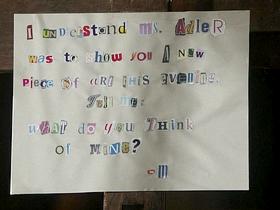 I UNDERstand ms. AdleR
was to show you A New
Piece of art this evening.
Tell me:
what do you Think
of MINE?
-m